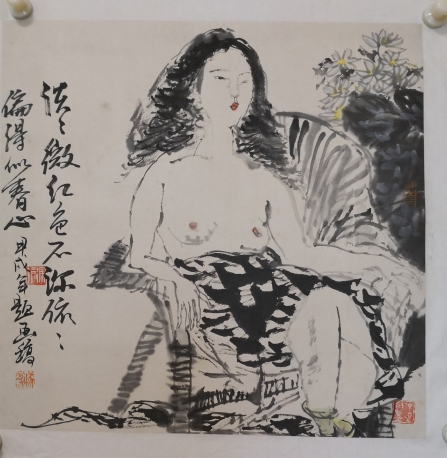 淡〻微红色不深依〻
偏得似春心 甲戌年题